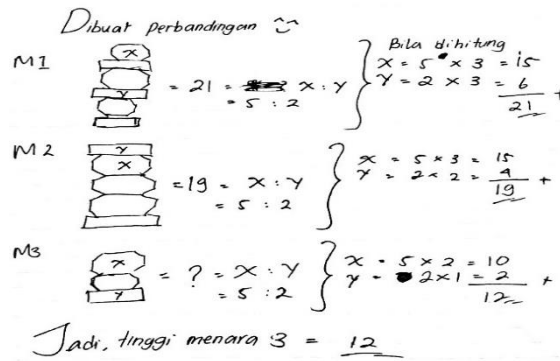 Dibuat perbandingan
M1
X
Y
= 21 = X : Y
= 5 : 2
Bila dihitung
X = 5 × 3 = 15
Y = 2 × 3 = 6
21 +
M2
Y
X
= 19 = X : Y
= 5 : 2
X = 5 × 3 = 15
Y = 2 × 2 = 4
19 +
M3
X
Y
= ? = X : Y
= 5 : 2
X = 5 × 2 = 10
Y = 2 × 1 = 2
12 +
Jadi, tinggi menara 3 = 12